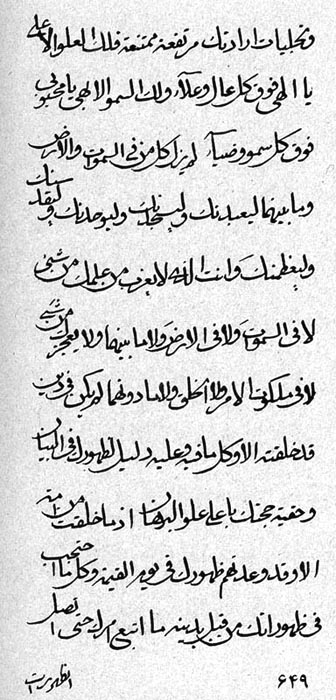 وتجليات ارادتك مرتفعة ممتنعة فلك العلو الاعلى
يا الهي فوق كل عال وعلاء ولك السمو الالهي يا محبوبي
فوق كل سمو وضياء لم يزل كل من في السموات والارض
وما بينهما ليعبدنك وليسجدنك وليوحدنك وليقدسنك
وليعظمنك وانت الله لا يعزب من علمك من شئ
لا في السموات ولا في الارض ولا ما بينهما ولا يعجزك من شئ
لا في ملكوت الامر ولا الخلق ولا ما دونهما لم يكن في دين
قد خلقته الا وكل ما فيه وعليه دليل لظهورك في البيان
وحقية حجتك باعلى علو البرهان اذ ما خلقت من امة
الا وقد وعدتهم ظهورك في يوم القيمة وكل ما احتجب
في ظهوراتك من قبل بدينه ما اتبع امرك حتى اتصل
٦٤٩